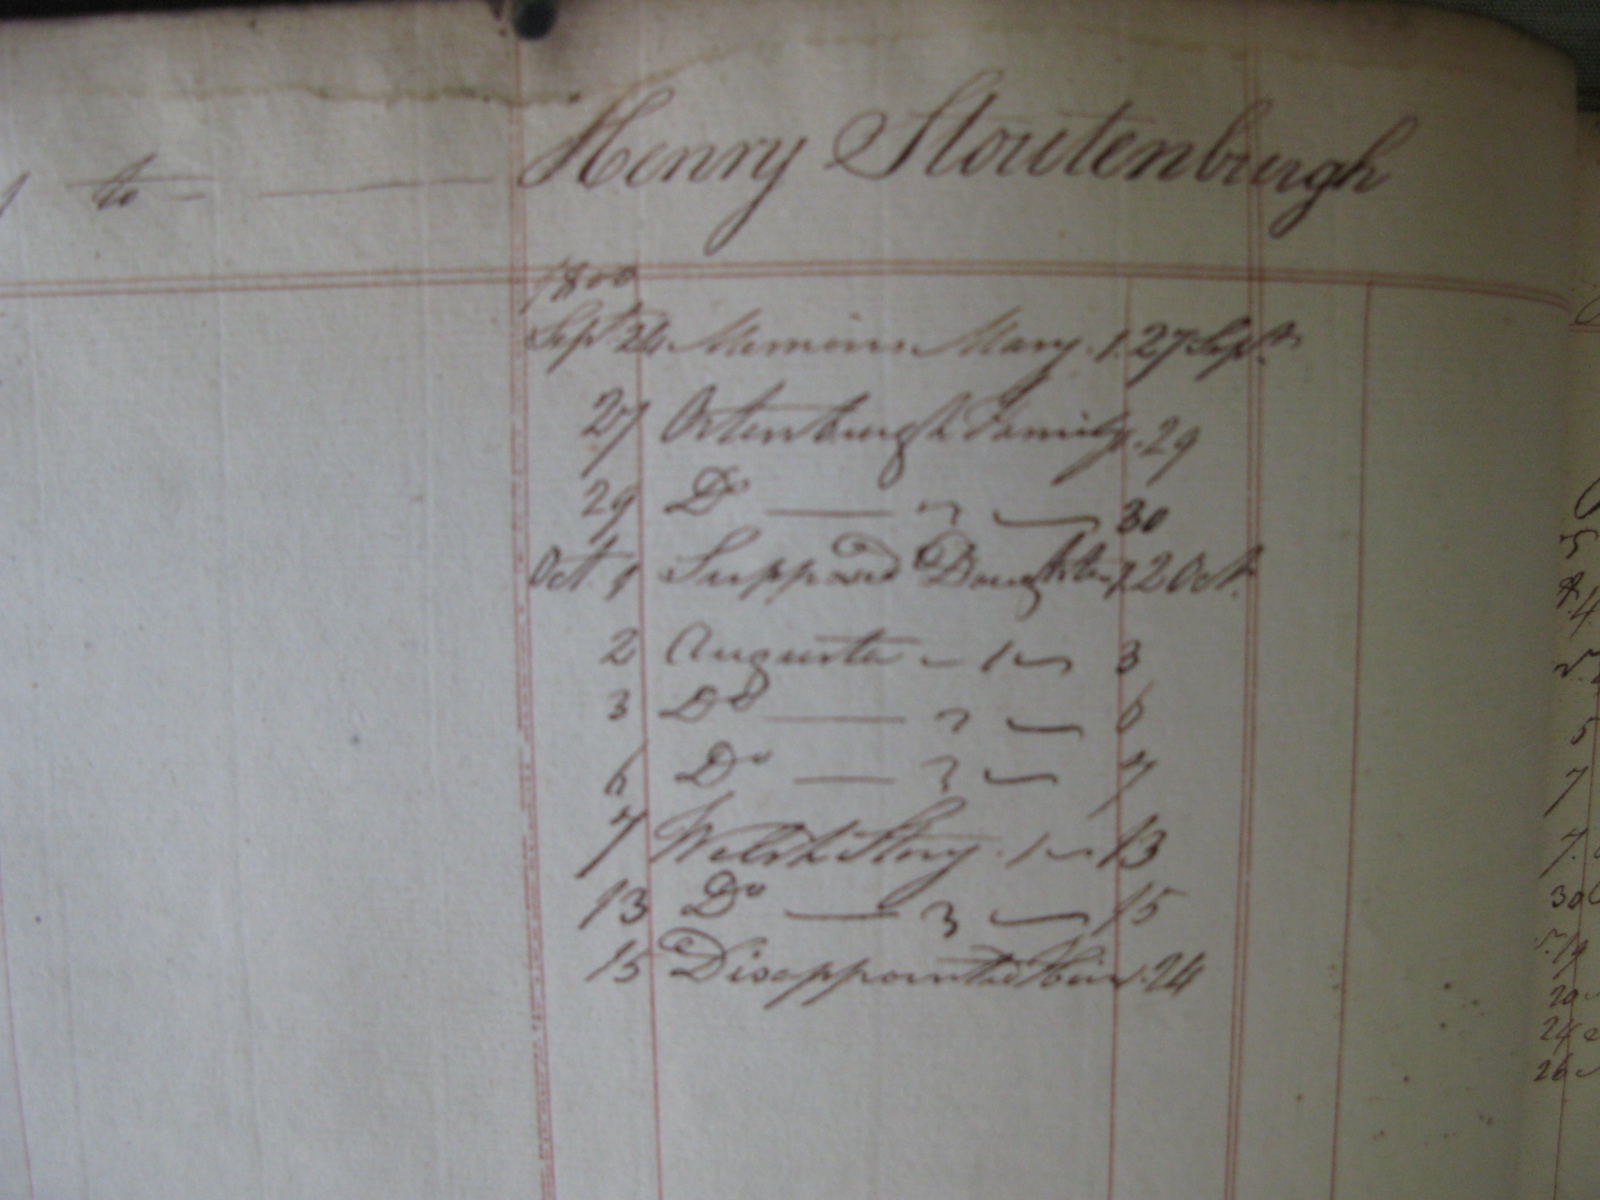 to - Henry Stoutenburgh
1800
Sept 24 Memoirs Mary. 1. 27 Sept
27 Ortenburgh Family. 29
29 Do 2 30
Oct 1 Supposed Daughter 1, 2 Oct
2 Augusta - 1 3
3 Do 2 6
6 Do 3 7
7 Welsh Story. 1 13
13 Do 3 15
15 Disappointed Heir. 24
5
4
5
7
7.
30
19
20
24
26